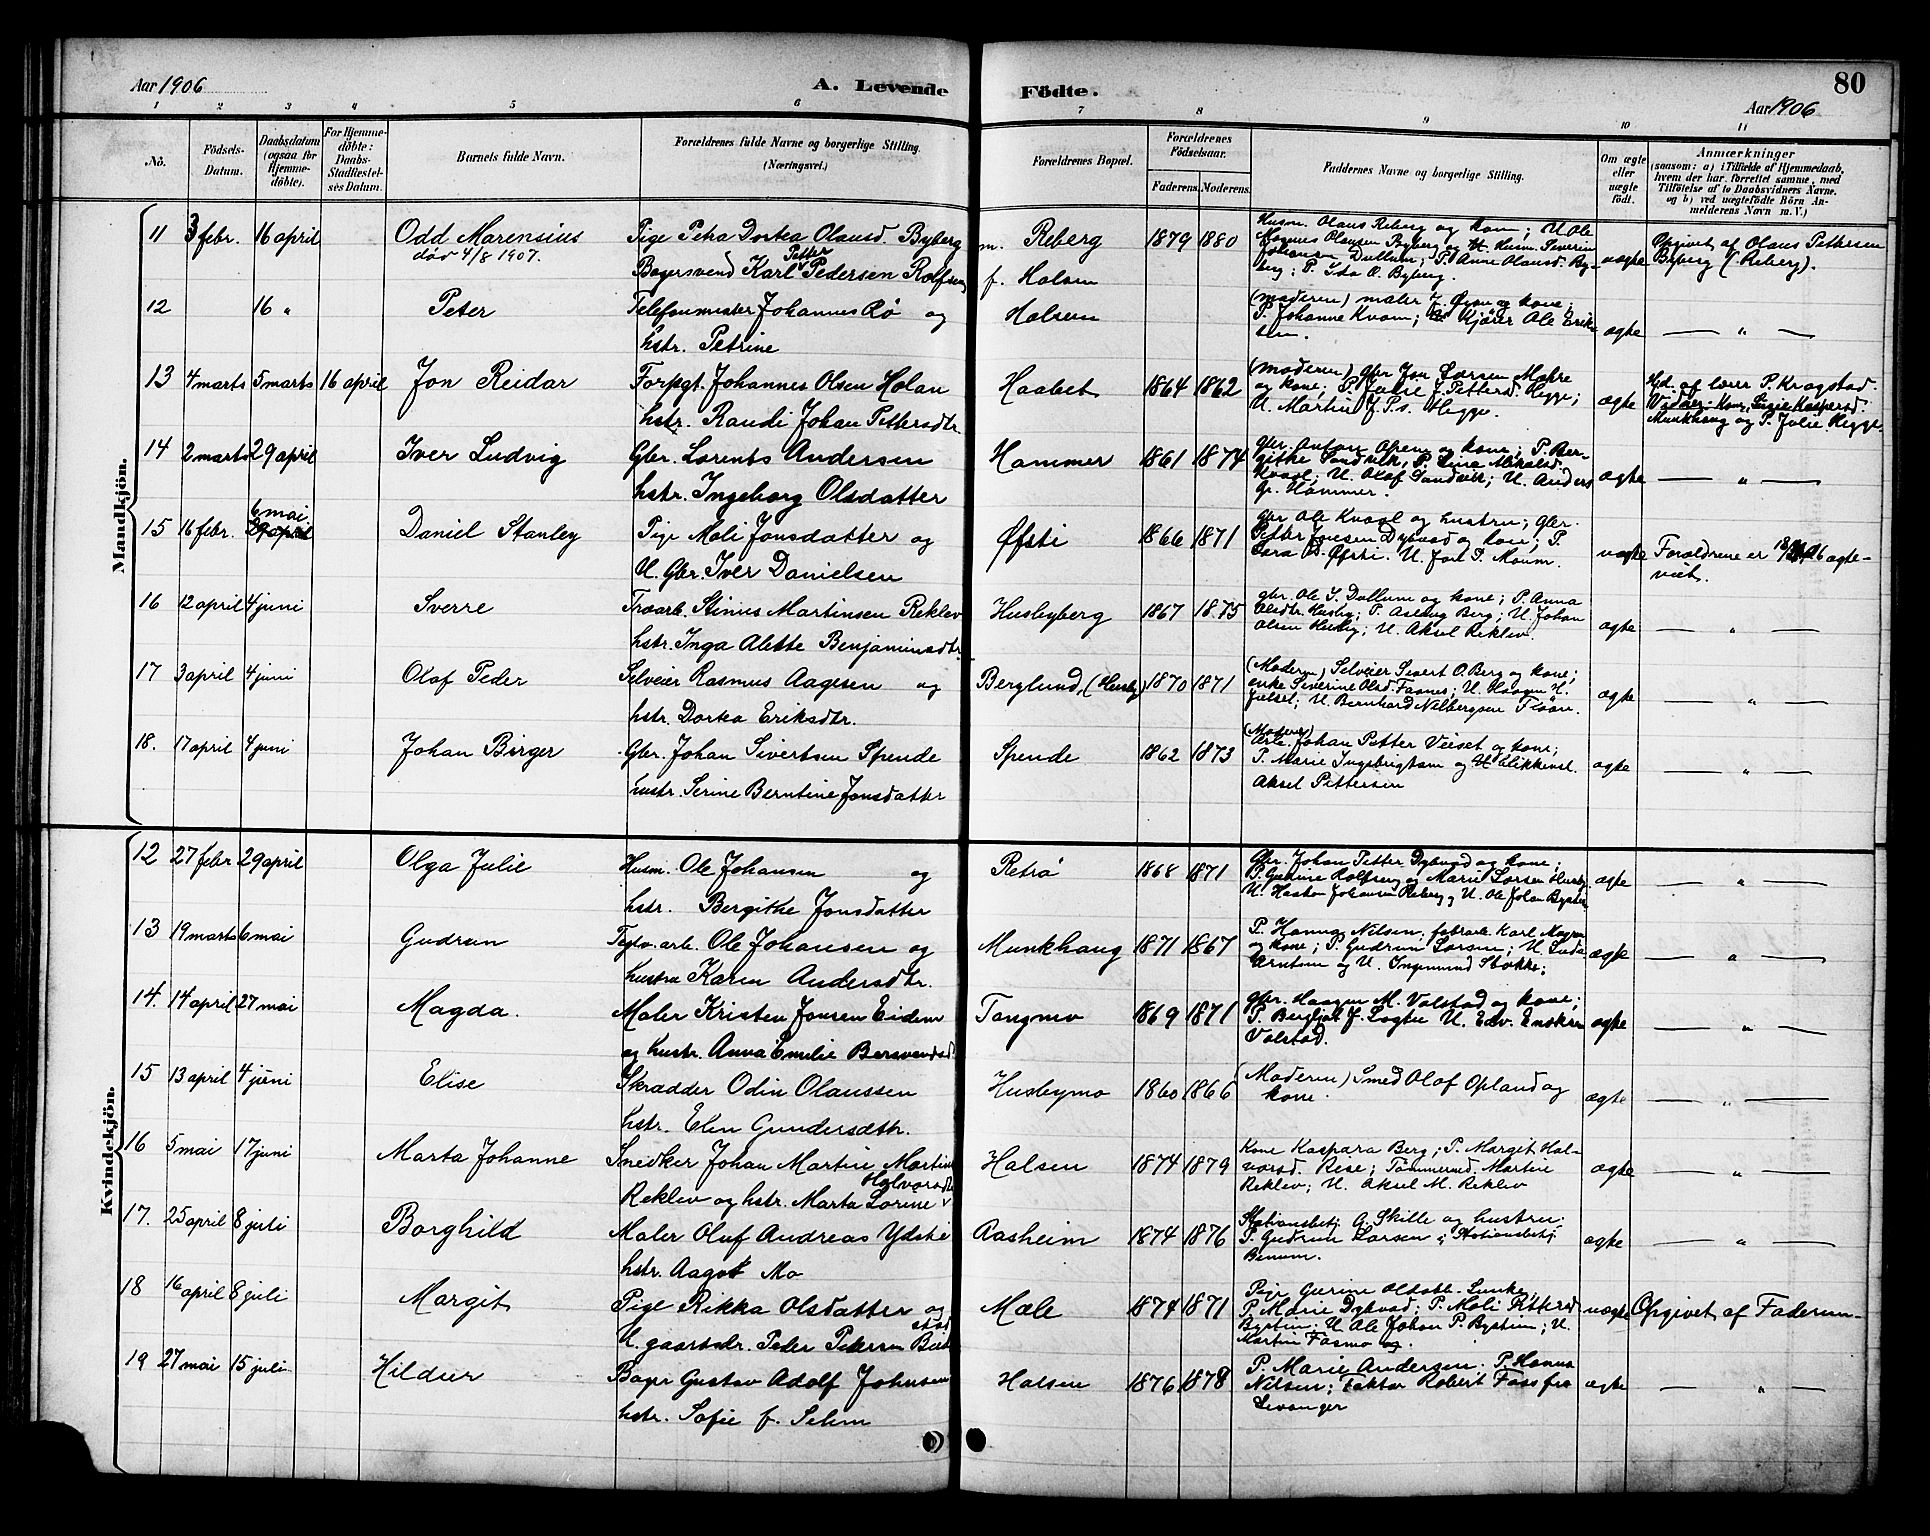 Aar 1906
A. Levende
Födte.
80
Aar 1906
1 2 3 4 5 6 7 8 9 10 11
No.
Födsels-Datum.
Daabsdatum (ogsaa for Hjemme-döbte).
For Hjemme-döbte: Daabs-Stadfæstel-ses Datum.
Barnets fulde Navn.
Forældrenes fulde Navne og borgerlige Stilling. (Næringsvei.)
Forældrenes Bopæl.
Forældrenes Födselsaar.
Faderens. Moderens.
Faddernes Navne og borgerlige Stilling.
Om ægte eller uægte födt.
Anmærkninger
(saasom: a) i Tilfælde af Hjemmedaab, hvem der har forrettet samme, med Tilföielse af to Daabsvidners Navne. og b) ved uægtefödte Börn An-melderens Navn m. V.)
Mandkjön.
11 3 febr. 16 april Odd Marensius Pige Petra Dortea Olausd. Byberg m. Reberg 1879 1880
død 4/8 1907. Petter
Bagersvend Karl Pedersen Rolfsen f. Halsen
Husm. Olaus Reberg og kone; U. Ole
Magnus Olausen Byberg og U. Husm. Severin
Johansen Dullum; P. Anne Olausd. By-
berg; P. Ida O. Byberg.
uægte Opgivet af Olaus Pettersen
Byberg (Reberg).
12 16 " Peter Telefonmester Johannes Rø og Halsen
hstr. Petrine
(moderen) maler J. Øien og kone;
P. Johanne Kvam; Kjører Ole Erik-
sen. ægte — " —
13 4 marts 5 marts 16 april Jon Reidar Forpgt. Johannes Olsen Holan Haabet 1864 1862
hstr. Randi Johan Pettersdtr.
(moderen) gbr Jon Larsen Mæhre
og kone; P. Julie J. Pettersd. Hegge;
U. Martin J. P.s. Hegge. ægte
Hjd. af lærer P. Kragstad.
Vidner: Kone Kaspersd.
Munkhaug og P. Julie Hegge.
14 2 marts 29 april Iver Ludvig Gbr. Lorents Andersen Hammer 1861 1874
hstr. Ingeborg Olsdatter
gbr. Anton Open og kone; P. Ber-
githe Sandvik, P. Lina Mikalsd.
Kvaal; U. Olaf Sandvik; U. Anders
Gr. Hammer. ægte — " —
6 mai
15 16 febr. 29 april Daniel Stanley Pige Moli Jonsdatter og Øfsti 1866 1871
U. Gbr. Iver Danielsen
gbr Ole Kvaal og hustru; gbr.
Petter Jonsen Dybvad og kone; P.
Sara D. Øfsti. U. Jon P. Moum.
uægte Forældrene er ægte-
viet.
16 12 april 4 juni Sverre Træarb. Stinus Martinsen Reklev Husbyberg 1867 1875
hstr. Inga Alette Benjaminsdtr.
gbr. Ole S. Dullum og kone; P. Anna
Olsdtr. Husby; P. Aslaug Berg; U. Johan
Olsen Husby, U. Aksel Reklev. ægte — " —
17 3 april 4 juni Olaf Peder Selveier Rasmus Aagesen og Berglund, (Husby) 1870 1871
hstr. Dortea Eriksdtr.
(Moderen) Selveier Sivert O. Berg og kone;
enke Severine Olsd. Faanes; U. Haagen H.
Jelset; U. Bernhard Nilbergsen Floan. ægte — " —
18. 17 april 4 juni Johan Birger Gbr. Johan Sivertsen Spende Spende 1862 1873
hustr. Serine Berntine Jonsdatter
(Moderen)
Arb. Johan Petter Veiset og kone;
P. Marie Ingebrigtsen og U. Blikkensl.
Aksel Pettersen ægte — " —
Kvindekjön.
12 27 febr 29 april Olga Julie Husm. Ole Johansen og Retrø 1868 1871
hstr. Bergithe Jonsdatter
Gbr. Johan Petter Dybvad og kone;
P. Gurine Rolfseng og Marie Larsen Husby.
U. Hartin Johansen Reberg, U. Ole Johan Bystin ægte — " —
13 19 marts 6 mai Gudrun Teglv. arb. Ole Johansen og Munkhaug 1871 1867
hustru Karen Andersdtr.
P. Hanna Nilsen; fabrarb. Karl Mogren
og kone; P. Gudrun Larsen; U. Ludv.
Arntsen og U. Ingemund Stokke; ægte — " —
14. 14 april 27 mai Magda. Maler Kristen Jonsen Eidem Tangmo 1869 1871
og hustr. Anna Emilie Bersvendsd.
gbr. Haagen M. Valstad og kone;
P. Bergljot J. Lagtu U. Edv. Enoksen
Valstad. ægte — " —
15 13 april 4 juni Elise Skrædder Odin Olaussen Husbymo 1860 1866
hstr. Elen Gundersdtr.
(Moderen) Smed Olaf Opland og
kone. ægte — " —
16 5 mai 17 juni Marta Johanne Snedker Johan Martin Martins Halsen 1874 1879
Halvorsdtr.
Reklev og hstr. Marta Lorine
Kone Kaspara Berg; P. Margit Hal-
vorsd. Rese; Tømmermd. Martin
Reklev; U. Aksel M. Reklev ægte — " —
17. 25 april 8 juli Borghild Maler Oluf Andreas Ydsti Aasheim 1874 1876
hstr. Aagot Mo
Stationsbetj. G. Skille og hustru;
P. Gudrun Larsen; Stationsbetj
Benum. ægte — " —
18 16 april 8 juli Margit Pige Rikka Olsdatter og Mæle 1874 1871
U. gaardbr. Peder Petersen
Pige Gurine Olsdtr. Lunke;
P. Marie Dybvad; P. Moli Pettersd
Bystin; U. Ole Johan P. Bystin; U.
Martin Fasmo og.
uægte Opgivet af Faderen—
19 27 mai 15 juli Hildur Bager Gustav Adolf Johnsen Halsen 1876 1878
hstr. Sofie f. Selim
P. Marie Andersen; P. Hanna
Nilsen; Faktor Robert Foss fra
Levanger ægte — " —